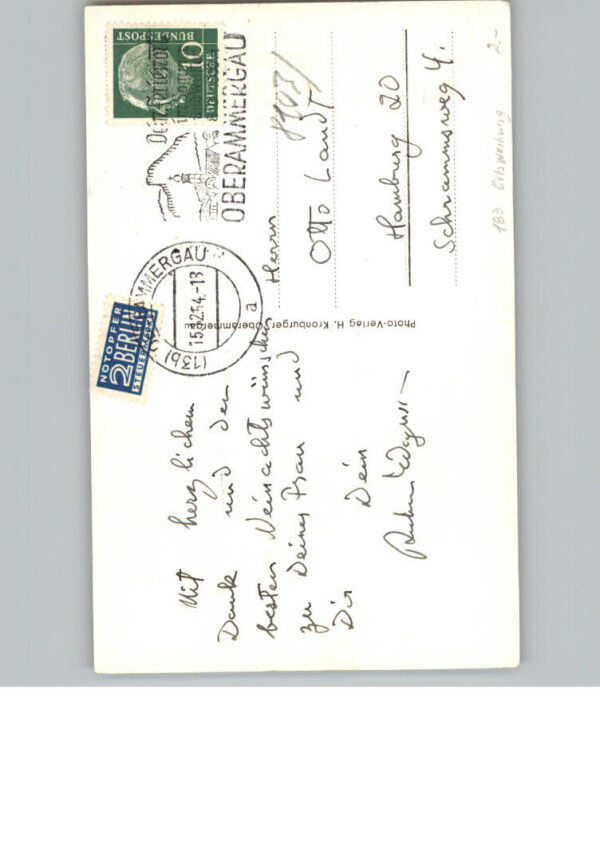 Mit herzlichem
Dank und den
besten Weihnachtswünschen
zu Deiner Frau und
Dir Dein
Photo-Verlag H. Kronburger, Oberammergau
NOTOPFER
2 BERLIN
STEUERMARKE
OBERAMMERGAU
(13b)
15.12.54.-18
a
Dein Ferienort
OBERAMMERGAU
DEUTSCHE
BUNDESPOST
10
Herrn
Otto Landt
Hamburg 20
Schrammsweg 4.
183 Ortswerbung
2.-